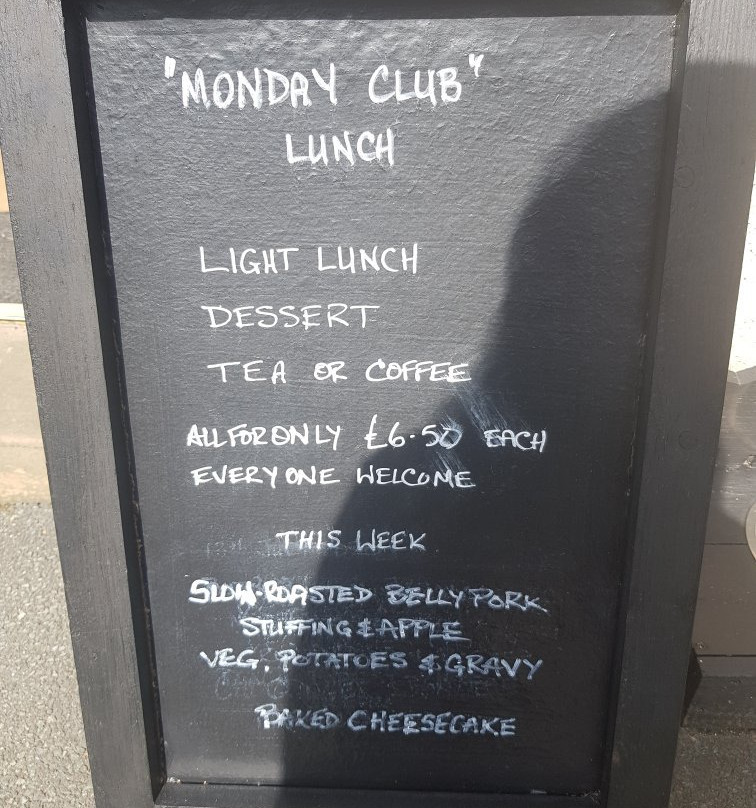 "MONDAY CLUB"
LUNCH
LIGHT LUNCH
DESSERT
TEA OR COFFEE
ALL FOR ONLY £6.50 EACH
EVERYONE WELCOME
THIS WEEK
SLOW-ROASTED BELLY PORK
STUFFING & APPLE
VEG, POTATOES & GRAVY
BAKED CHEESECAKE